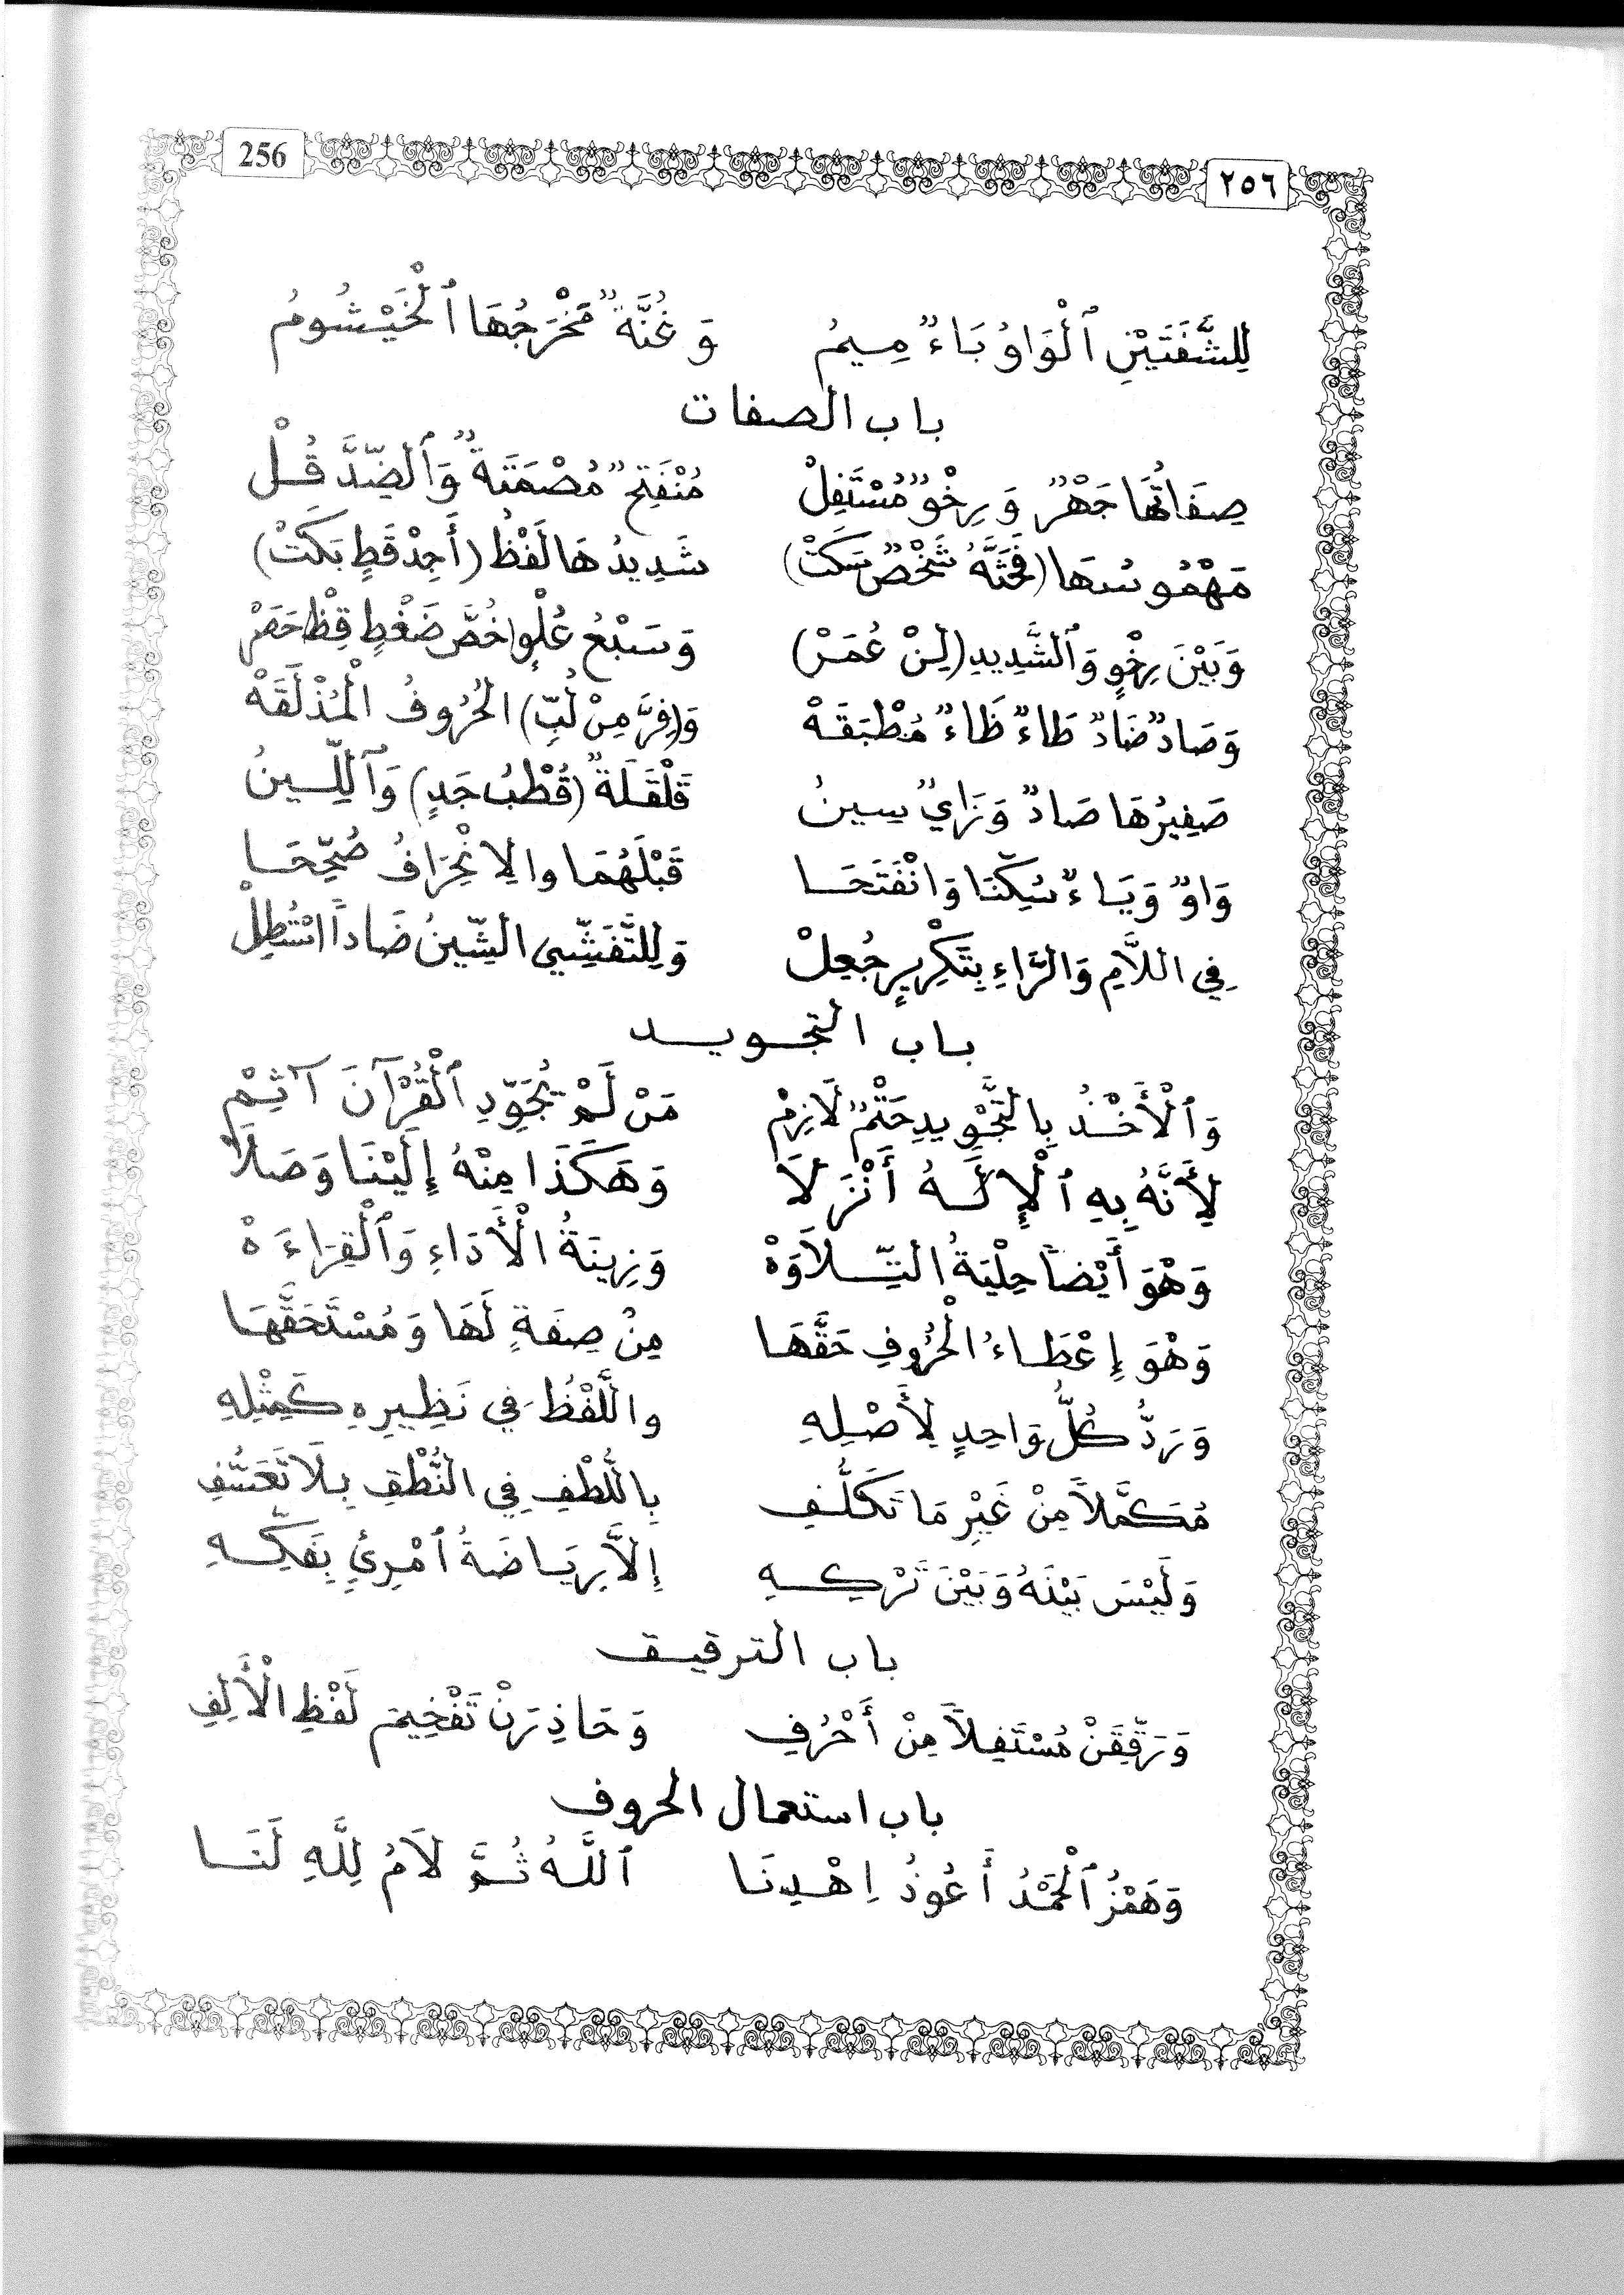 256 ٢٥٦
لِلشَّفَتَيْنِ ٱلْوَاوُ بَاءٌ مِيمُ وَغُنَّةٌ مَخْرَجُهَا ٱلْخَيْشُومُ
باب الصفات
صِفَاتُهَا جَهْرٌ وَرِخْوٌ مُسْتَفِلْ مُنْفَتِحٌ مُصْمَتَةٌ وَٱلضِّدَّ قُلْ
مَهْمُوسُهَا (فَحَثَّهُ شَخْصٌ سَكَتْ) شَدِيدُهَا لَفْظُ (أَجِدْ قَطٍ بَكَتْ)
وَبَيْنَ رِخْوٍ وَٱلشَّدِيدِ (لِنْ عُمَرْ) وَسَبْعُ عُلْوٍ خُصَّ ضَغْطٍ قِظْ حَصَرْ
وَصَادٌ ضَادٌ طَاءٌ ظَاءٌ مُطْبَقَهْ وَ(فِرَّ مِنْ لُبِّ) الحُرُوفُ الْمُذْلَقَهْ
صَفِيرُهَا صَادٌ وَزَايٌ سِينُ قَلْقَلَةٌ (قُطْبُ جَدٍ) وَٱللِّينُ
وَاوٌ وَيَاءٌ سُكِّنَا وَانْفَتَحَا قَبْلَهُمَا والِانْحِرَافُ صُحِّحَا
فِي اللاَّمِ وَالرَّاءِ بِتَكْرِيرٍ جُعِلْ وَلِلتَّفَشِّي الشِّينُ ضَاداً اسْتُطِلْ
باب التجويد
وَٱلْأَخْذُ بِالتَّجْوِيدِ حَتْمٌ لَازِمْ مَنْ لَمْ يُجَوِّدِ ٱلْقُرْآنَ آثِمْ
لِأَنَّهُ بِهِ ٱلْإِلَهُ أَنْزَلَا وَهَكَذَا مِنْهُ إِلَيْنَا وَصَلاَ
وَهْوَ أَيْضاً حِلْيَةُ التِّلاَوَهْ وَزِينَةُ الْأَدَاءِ وَٱلْقِرَاءَهْ
وَهْوَ إِعْطَاءُ الْحُرُوفِ حَقَّهَا مِنْ صِفَةٍ لَهَا وَمُسْتَحَقَّهَا
وَرَدُّ كُلِّ وَاحِدٍ لِأَصْلِهِ واللَّفْظُ فِي نَظِيرِهِ كَمِثْلِهِ
مُكَمَّلاً مِنْ غَيْرِ مَا تَكَلُّفِ بِاللُّطْفِ فِي النُّطْقِ بِلَا تَعَسُّفِ
وَلَيْسَ بَيْنَهُ وَبَيْنَ تَرْكِهِ إِلاَّ رِيَاضَةُ ٱمْرِئٍ بِفَكِّهِ
باب الترقيق
وَرَقِّقَنْ مُسْتَفِلاً مِنْ أَحْرُفِ وَحَاذِرَنْ تَفْخِيمَ لَفْظِ الْأَلِفِ
باب استعمال الحروف
وَهَمْزُ ٱلْحَمْدُ أَعُوذُ اِهْدِنَا ٱللَّهُ ثُمَّ لاَمُ لِلَّهِ لَنَا